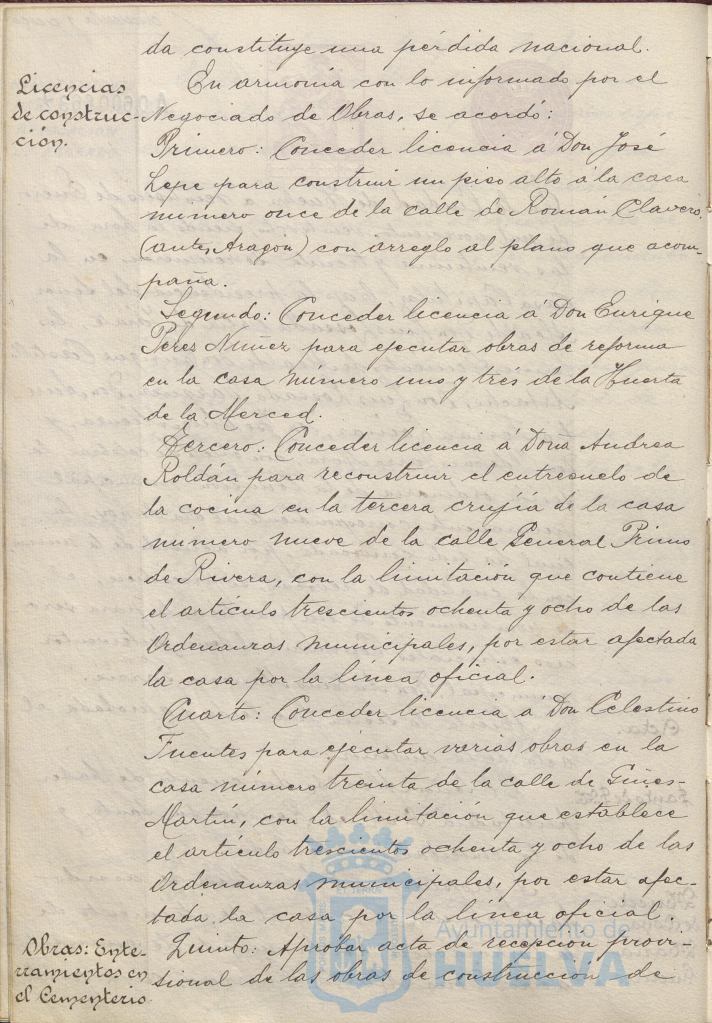 da constituye una pérdida nacional.
Licencias
de construc-
ción.
En armonía con lo informado por el
Negociado de Obras, se acordó:
Primero: Conceder licencia á Don José
Lepe para construir un piso alto á la casa
número once de la calle de Román Clavero,
(antes Aragón) con arreglo al plano que acom-
paña.
Segundo: Conceder licencia á Don Enrique
Perez Nuñez para ejecutar obras de reforma
en la casa número uno y tres de la Huerta
de la Merced.
Tercero: Conceder licencia á Doña Andrea
Roldán para reconstruir el entresuelo de
la cocina en la tercera crujía de la casa
número nueve de la calle General Primo
de Rivera, con la limitación que contiene
el artículo trescientos ochenta y ocho de las
Ordenanzas municipales, por estar afectada
la casa por la línea oficial.
Cuarto: Conceder licencia á Don Celestino
Fuentes para ejecutar varias obras en la
casa número treinta de la calle de Ginés-
Martín, con la limitación que establece
el artículo trescientos ochenta y ocho de las
Ordenanzas municipales, por estar afec-
tada la casa por la línea oficial.
Obras: Ente-
rramientos en
el Cementerio
Quinto: Aprobar acta de recepción provi-
sional de las obras de construcción de
Ayuntamiento de
HUELVA